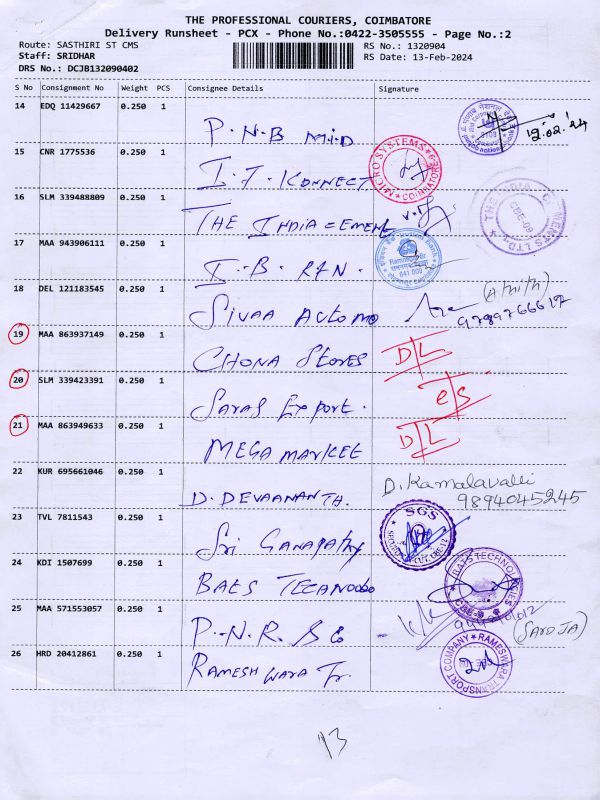 THE PROFESSIONAL COURIERS, COIMBATORE
Delivery Runsheet - PCX - Phone No.:0422-3505555 - Page No.:2
Route: SASTHIRI ST CMS RS No.: 1320904
Staff: SRIDHAR RS Date: 13-Feb-2024
DRS No.: DCJB132090402
S No Consignment No Weight PCS Consignee Details Signature
14 EDQ 11429667 0.250 1
P.N.B M.D 12.02.24
15 CNR 1775536 0.250 1
I.T. KONNECT MICRO SYSTEMS COIMBATORE
16 SLM 339488809 0.250 1
THE INDIA CEMENT THE INDIA CEMENTS LTD. CBE-09
17 MAA 943906111 0.250 1
I.B. Indian Bank 641 009
18 DEL 121183545 0.250 1
SIVAA AUTOMO 9789766617
19 MAA 863937149 0.250 1
CHONA STORES D/L
20 SLM 339423391 0.250 1
SARAS EXPORT. e/s
21 MAA 863949633 0.250 1
MEGA MARKET D/L
22 KUR 695661046 0.250 1
D. DEVAANANTH. D. Kamalavalli
9894045245
23 TVL 7811543 0.250 1
SRI GANAPATHY SGS
24 KDI 1507699 0.250 1
BAES TECHNOLO BAES TECHNOLOGIES
25 MAA 571553057 0.250 1
P.N.R. & Co (SAROJA)
26 HRD 20412861 0.250 1
RAMESHWARA Tr. RAMESWARA TRANSPORT COMPANY
13